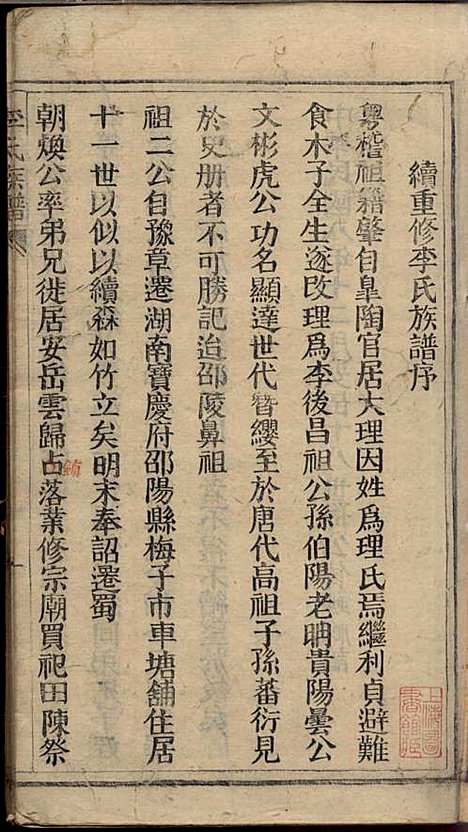 續重修李氏族譜序
粵稽祖籍肇自臯陶官居大理因姓爲理氏焉繼利貞避難
食木子全生遂改理爲李後昌祖公孫伯陽老聃貴陽曇公
文彬虎公功名顯達世代簪纓至於唐代高祖子孫蕃衍見
於史册者不可勝記迨邵陵鼻祖
祖二公自豫章遷湖南寶慶府邵陽縣梅子市車塘舖住居
十一世以似以續森如竹立矣明末奉詔遷蜀
朝煥公率弟兄徙居安岳雲歸占落業修宗廟買祀田陳祭
鎮
李氏族譜
上海圖書館藏